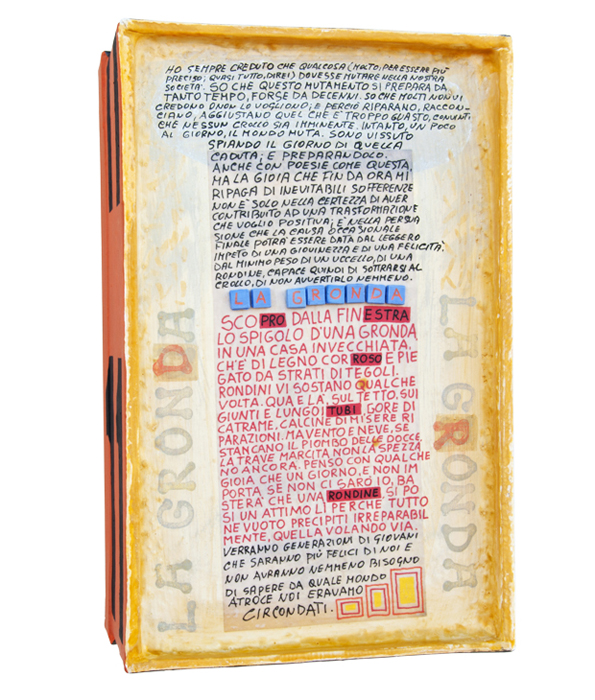 HO SEMPRE CREDUTO CHE QUALCOSA (MOLTO, PER ESSERE PIÙ
PRECISO; QUASI TUTTO, DIREI) DOVESSE MUTARE NELLA NOSTRA
SOCIETÀ. SO CHE QUESTO MUTAMENTO SI PREPARA DA
TANTO TEMPO, FORSE DA DECENNI. SO CHE MOLTI NON VI
CREDONO O NON LO VOGLIONO; E PERCIÒ RIPARANO, RACCON-
CIANO, AGGIUSTANO QUEL CHE È TROPPO GUASTO, CONVINTI
CHE NESSUN CROLLO SIA IMMINENTE. INTANTO, UN POCO
AL GIORNO, IL MONDO MUTA. SONO VISSUTO
SPIANDO IL GIORNO DI QUELLA
CADUTA; E PREPARANDOLO.
ANCHE CON POESIE COME QUESTA.
MA LA GIOIA CHE FIN DA ORA MI
RIPAGA DI INEVITABILI SOFFERENZE
NON È SOLO NELLA CERTEZZA DI AVER
CONTRIBUITO AD UNA TRASFORMAZIONE
CHE VOGLIO POSITIVA; È NELLA PERSUA
SIONE CHE LA CAUSA OCCASIONALE
FINALE POTRÀ ESSERE DATA DAL LEGGERO
IMPETO DI UNA GIOVINEZZA E DI UNA FELICITÀ.
DAL MINIMO PESO DI UN UCCELLO, DI UNA
RONDINE, CAPACE QUINDI DI SOTTRARSI AL
CROLLO, DI NON AVVERTIRLO NEMMENO.
LA GRONDA
SCOPRO DALLA FINESTRA
LO SPIGOLO D'UNA GRONDA,
IN UNA CASA INVECCHIATA,
CH'È DI LEGNO CORROSO E PIE
GATO DA STRATI DI TEGOLI.
RONDINI VI SOSTANO QUALCHE
VOLTA. QUA E LÀ, SUL TETTO, SUI
GIUNTI E LUNGO I TUBI, GORE DI
CATRAME, CALCINE DI MISERE RI
PARAZIONI. MA VENTO E NEVE, SE
STANCANO IL PIOMBO DELLE DOCCE,
LA TRAVE MARCITA NON LA SPEZZA
NO ANCORA. PENSO CON QUALCHE
GIOIA CHE UN GIORNO, E NON IM
PORTA SE NON CI SARÒ IO, BA
STERÀ CHE UNA RONDINE SI PO
SI UN ATTIMO LÌ PERCHÉ TUTTO
NE VUOTO PRECIPITI IRREPARABIL
MENTE, QUELLA VOLANDO VIA.
VERRANNO GENERAZIONI DI GIOVANI
CHE SARANNO PIÙ FELICI DI NOI E
NON AVRANNO NEMMENO BISOGNO
DI SAPERE DA QUALE MONDO
ATROCE NOI ERAVAMO
CIRCONDATI.
LA GRONDA
LA GRONDA